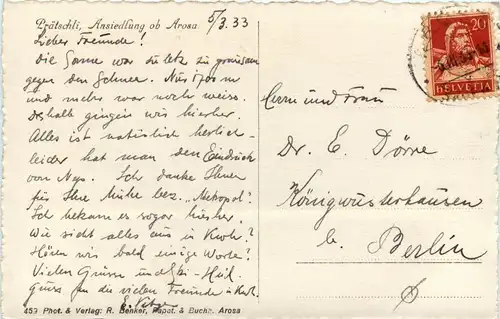 Prätschli, Ansiedlung ob Arosa
5/3.33
Liebe Freunde!
Die Sonne war zuletzt zu grausam
gegen den Schnee. Nur 1700 m
und mehr war noch weiss.
Deshalb gingen wir hierher.
Alles ist natürlich herrlich -
leider hat man den Eindruck
von. Ich danke Ihnen
für Ihre Mühe bez. „Metropol".
Ich bekam es sogar hierher.
Wie sieht alles aus in Kwh.?
Hören wir bald einige Worte?
Vielen Gruss und Ski-Heil.
Gruss an die vielen Freunde in Kwh.
E.
20
HELVETIA
Herrn und Frau
Dr. E. Dörre
Königswusterhausen
b. Berlin
459 Phot. & Verlag: R. Benker, Papet. & Buchh. Arosa